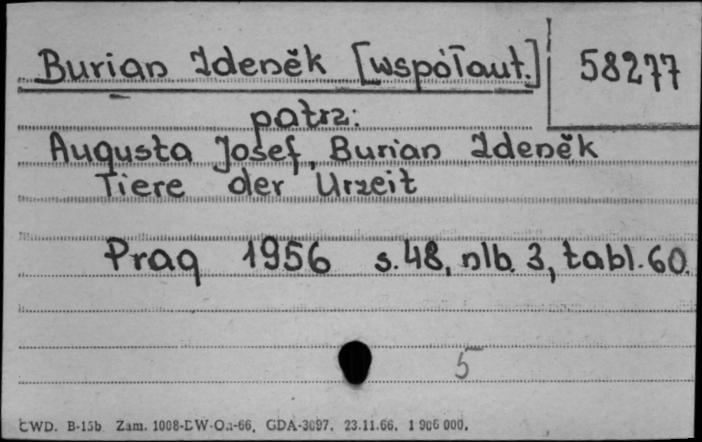 Burian Zdeněk [współaut.] 58277
patrz:
Augusta Josef, Burian Zdeněk
Tiere der Urzeit
Prag 1956 s. 48, nlb. 3, tabl. 60.
5
CWD. B-15b Zam. 1008-DW-Oa-66, GDA-3097. 23.11.66. 1 906 000.